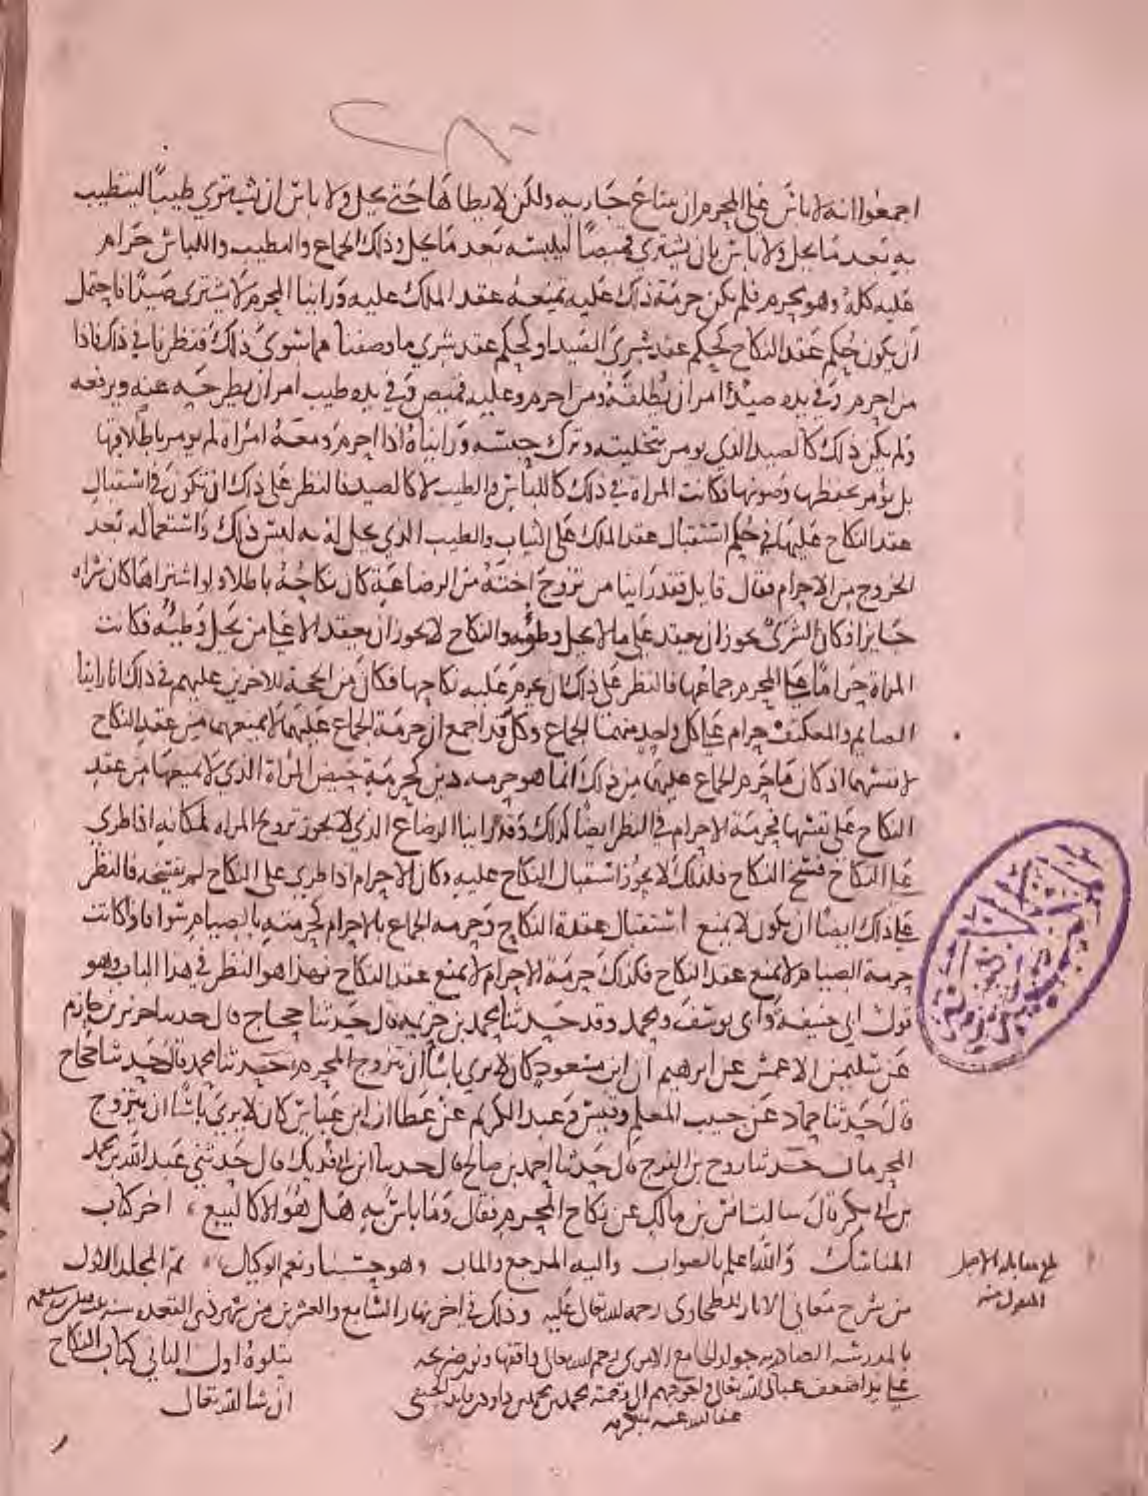 اجمعوا انه لا باس على المحرم ان يبتاع جاريه ولكن لا يطاها حتى يحل ولا باس ان يشتري طيبا ليتطيب
به بعد ما يحل ولا باس بان يشتري قميصا ليلبسه بعد ما يحل وذلك الجماع والتطيب واللباس حرام
عليه كله وهو محرم فلم يكن حرمة ذلك عليه تمنعه عقد الملك عليه وراينا المحرم لا يشتري صيدا فاحتمل
ان يكون حكم عقد النكاح كحكم عقد شرى الصيد او كحكم عقد شري ما وصفنا مما سوى ذلك فنظرنا في ذلك فاذا
من احرم وفي يده صيد امر ان يطلقه ومن احرم وعليه قميص وفي يده طيب امر ان يطرحه عنه ويرفعه
ولم يكن ذلك كالصيد الذي يومر بتخليته وترك حبسه ورايناه اذا احرم ومعه امراة لم يومر باطلاقها
بل يؤمر بحفظها وصونها فكانت المراة في ذلك كاللباس والطيب لا كالصيد فالنظر على ذلك ان تكون في استقبال
عقد النكاح عليها في حكم استقبال عقد الملك على الثياب والطيب الذي يحل له به لبس ذلك واستعماله بعد
الخروج من الاحرام فقال قايل فقد راينا من تزوج اخته من الرضاعة كان نكاحه باطلا ولو اشتراها كان شراه
جايزا فكان الشرى يجوز ان يعقد على ما لا يحل وطؤه والنكاح لا يجوز ان يعقد الا على من يحل وطيه فكانت
المراة حراما على المحرم جماعها فالنظر على ذلك ان يحرم عليه نكاحها فكان من الحجة للاخرين عليهم في ذلك انا راينا
الصايم والمعتكف حرام على كل واحد منهما الجماع وكل قد اجمع ان حرمة الجماع عليهما لا يمنعهما من عقد النكاح
لانفسهما اذ كان ما حرم الجماع عليهما من ذلك انما هو حرمه دين كحرمة حيض المراة الذي لا يمنعها من عقد
النكاح على نفسها فحرمة الاحرام في النظر ايضا كذلك وقد راينا الرضاع الذي لا يجوز تزوج المراه لمكانه اذا طري
على النكاح فسخ النكاح فلذلك لا يجوز استقبال النكاح عليه وكان الاحرام اذا طري على النكاح لم يفسخه فالنظر
على ذلك ايضا ان يكون لا يمنع استقبال عقدة النكاح وحرمه الجماع بالاحرام كحرمته بالصيام سوا فاذا كانت
حرمة الصيام لا يمنع عقد النكاح فكذلك حرمة الاحرام لا يمنع عقد النكاح فهذا هو النظر في هذا الباب وهو
قول ابي حنيفة وابي يوسف ومحمد وقد حدثنا محمد بن خزيمه قال حدثنا حجاج قال حدثنا جرير بن حازم
عن سليمن الاعمش عن ابرهيم ان ابن مسعود كان لا يرى باسا ان يتزوج المحرم حدثنا محمد قال حدثنا حجاج
قال حدثنا حماد عن حبيب المعلم وقيس وعبد الكريم عن عطا ان ابن عباس كان لا يرى باسا ان يتزوج
المحرمان حدثنا روح بن الفرج قال حدثنا احمد بن صالح قال حدثنا ابن ابي فديك قال حدثني عبد الله بن محمد
بن ابي بكر قال سالت انس بن مالك عن نكاح المحرم فقال وما باس به هل هو الا كالبيع اخر كتاب
المناسك والله اعلم بالصواب واليه المرجع والماب وهو حسبنا ونعم الوكيل تم المجلد الاول
من شرح معاني الاثار للطحاوي رحمه الله تعالى عليه وذلك في اخر نهار السابع والعشرين من شهر ذي القعده سنة
بالمدرسة الصادريه جوار الجامع الاموي رحم الله تعالى واقفها
يتلوه اول الثاني كتاب النكاح
على يد اضعف عباد الله تعالى واحوجهم الى رحمته محمد بن محمد بن داود الحنفي
ان شا الله تعالى
عفا الله عنه بكرمه
بلغ مقابلة بالاصل
المنقول منه